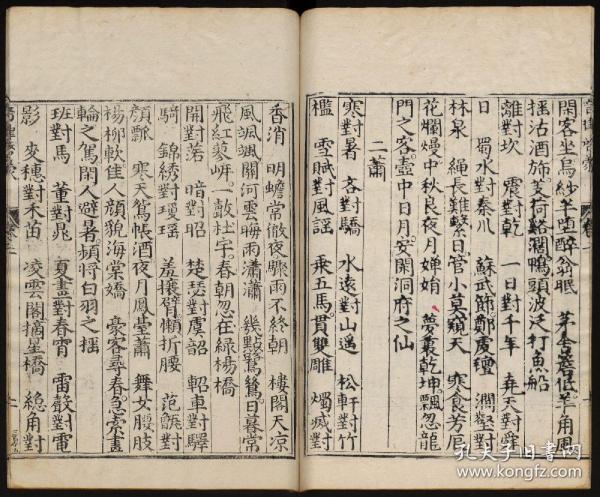 閑客坐烏紗半墮醉翁眠 茅舍簷低羊角風
搖沽酒旆芰荷谿濶鴨頭波泛打魚船
離對坎 震對乾 一日對千年 堯天對舜
日 蜀水對秦川 蘇武節鄭虔氊 澗壑對
林泉 繩長難繫日管小莫窺天 寒食芳辰
花爛熳中秋良夜月嬋娟 夢裏乾坤飄忽龍
門之客壺中日月安閑洞府之仙
二蕭
寒對暑 吝對驕 水遠對山遥 松軒對竹
檻 雪賦對風謡 乘五馬貫雙雕 燭滅對
香消 明蟾常徹夜驟雨不終朝 樓閣天凉
風颯颯關河雲晦雨瀟瀟 幾點鷺鷥日暮常
飛紅蓼岸一敲杜宇春朝忽在緑楊橋
開對落 暗對昭 楚瑟對虞韶 軺車對驛
騎 錦綉對瓊瑶 羞攘臂懶折腰 范甑對
顔瓢 寒天鴛帳酒夜月鳳臺蕭 舞女腰肢
楊柳軟佳人顔貌海棠嬌 豪客尋春忽畫
輪之駕閑人避暑頻將白羽之揺
班對馬 董對晁 夏晝對春宵 雷聲對電
影 麥穗對禾苗 凌雲閣摘星橋 總角對
孔夫子旧书网
www.kongfz.com